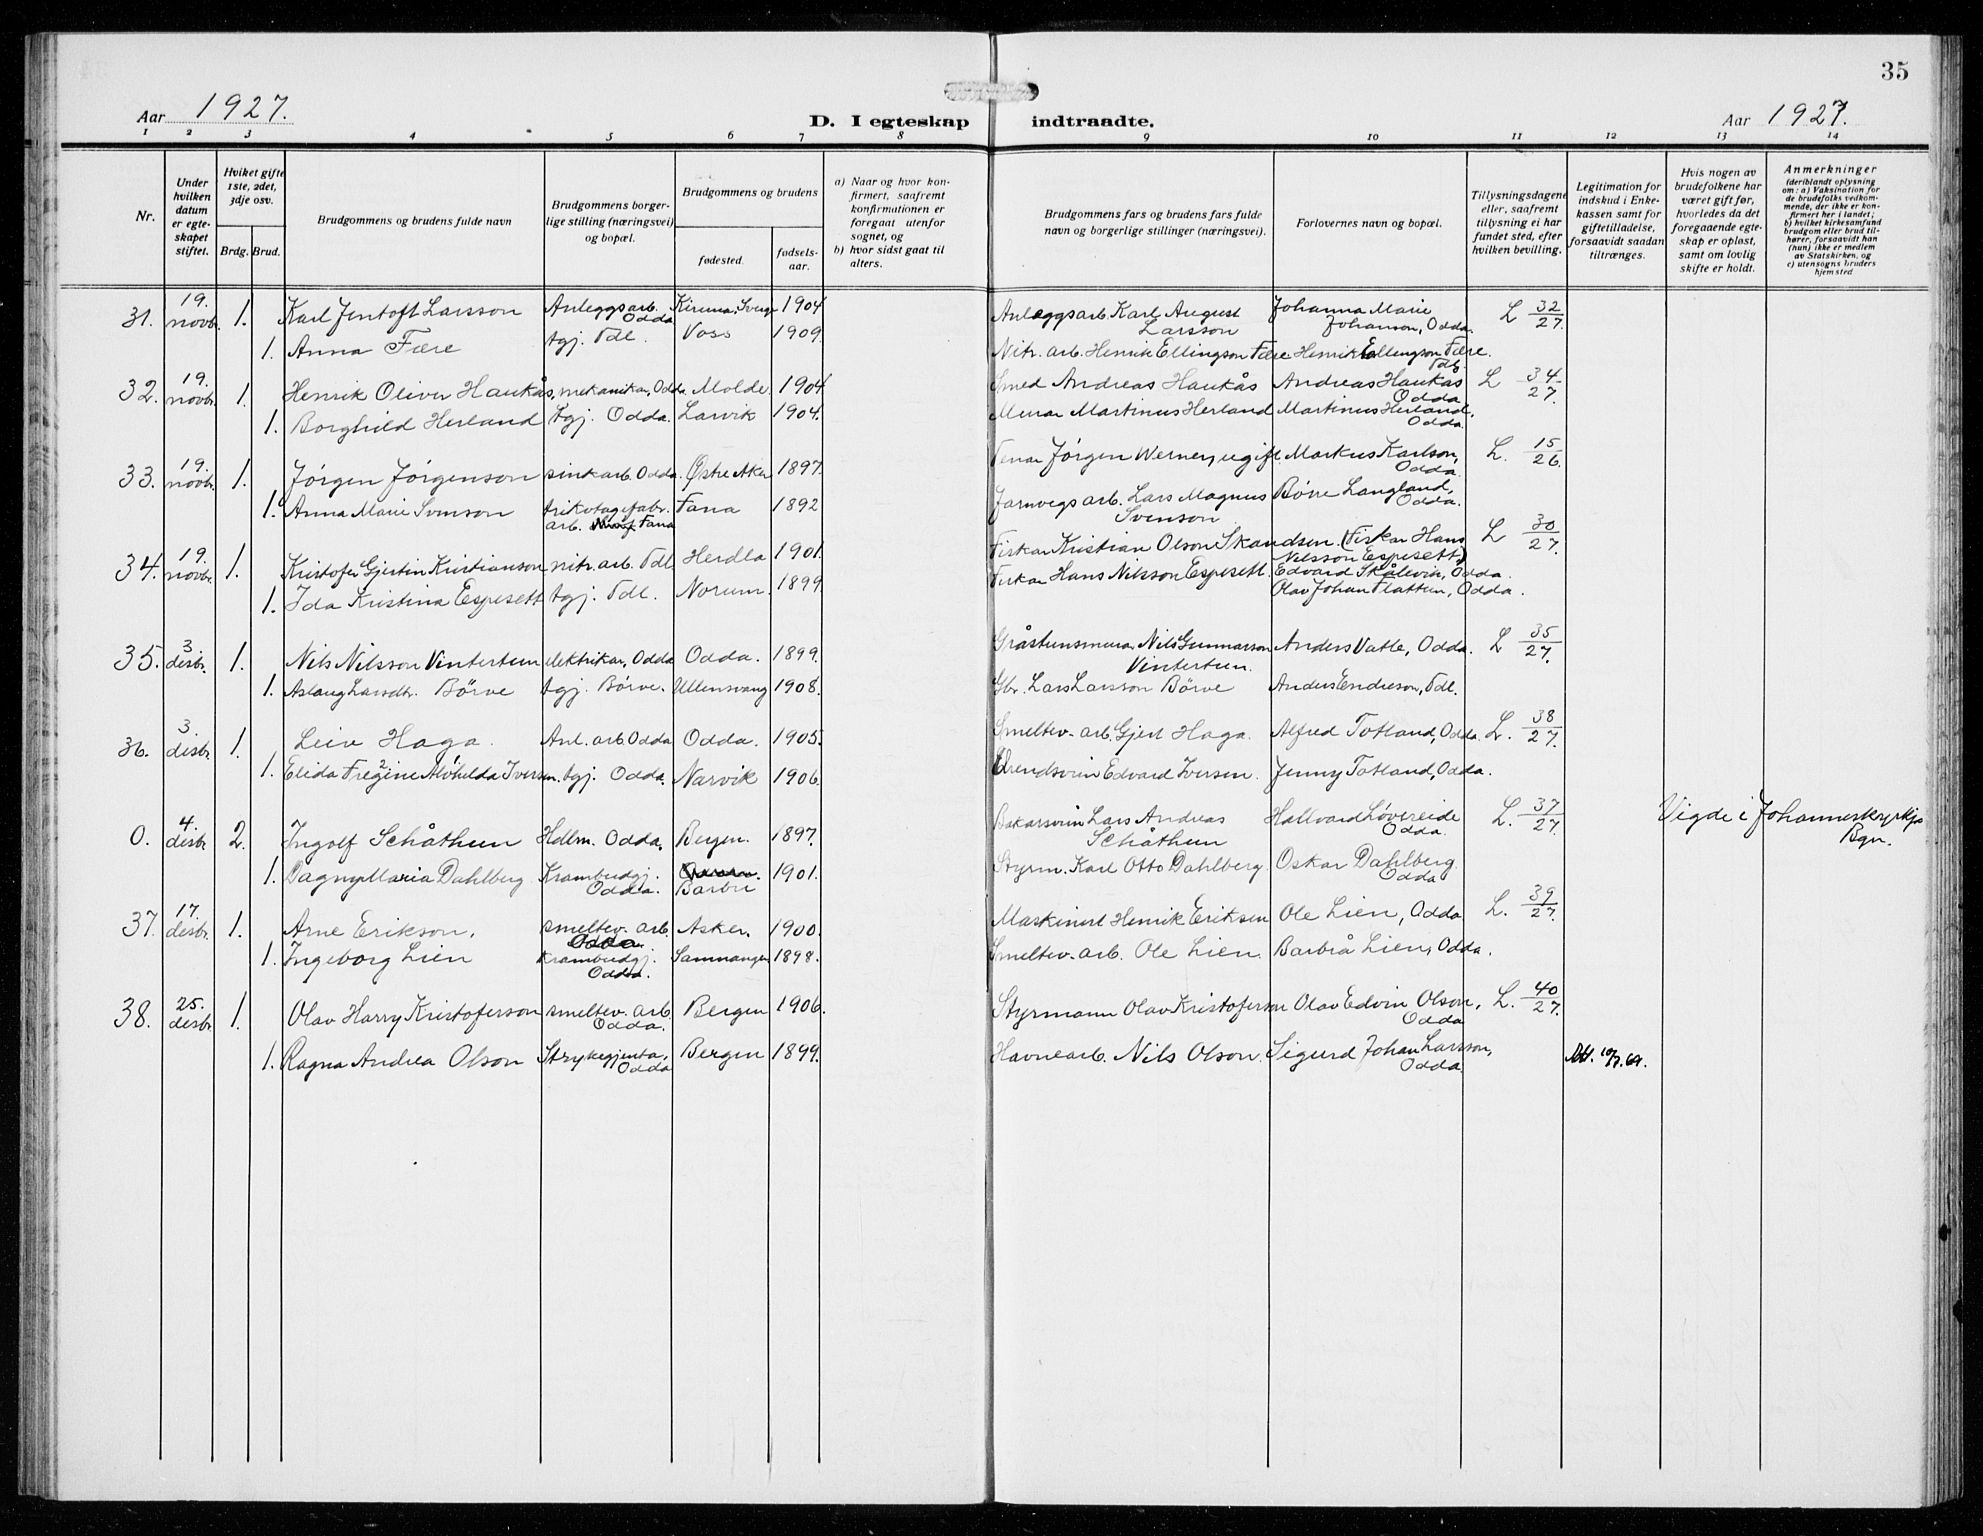 35
Aar 1927.
D. I egteskap indtraadte.
Aar 1927.
1 2 3 4 5 6 7 8 9 10 11 12 13 14
Nr.
Under hvilken datum er egteskapet stiftet.
Hviket gifte 1ste, 2det, 3dje osv.
Brdg. Brud.
Brudgommens og brudens fulde navn
Brudgommens borgerlige stilling (næringsvei) og bopæl.
Brudgommens og brudens
fødested.
fødselsaar.
a) Naar og hvor konfirmert, saafremt konfirmationen er foregaat utenfor sognet, og
b) hvor sidst gaat til alters.
Brudgommens fars og brudens fars fulde navn og borgerlige stillinger (næringsvei).
Forlovernes navn og bopæl.
Tillysningsdagene eller, saafremt tillysning ei har fundet sted, efter hvilken bevilling.
Legitimation for indskud i Enkekassen samt for giftetilladelse, forsaavidt saadan tiltrænges.
Hvis nogen av brudefolkene har været gift før, hvorledes da det foregaaende egteskap er opløst, samt om lovlig skifte er holdt.
Anmerkninger
(deriblandt oplysning om: a) Vaksination for de brudefolks vedkommende, der ikke er konfirmert her i landet; b) hvilket kirkesamfund brudgom eller brud tilhører, forsaavidt han (hun) ikke er medlem av Statskirken, og c) utensogns bruders hjemsted
31. 19. novbr. 1. Karl Jentoft Larsson Anleggsarb. Odda Kiruna, Sverge 1904 Anleggsarb Karl August Larsson Johanna Marie Johanson, Odda. L 32/27.
1. Anna Fære tgj. Tdl. Voss 1909. Nitr. arb. Henrik Ellingson Fære Henrik Ellingson Fære. Tdl.
32. 19. novbr. 1. Henrik Oliver Haukås, mekanikar, Odda Molde 1904 Smed Andreas Haukås Andreas Haukås Odda L 34/27.
1. Borghild Herland tgj. Odda. Larvik 1904. Murar Martinus Herland Martinus Herland, Odda.
33. 19. novbr. 1. Jørgen Jørgenson sinkarb. Odda. Østre Aker 1897. Tenar Jørgen Werner, ugift. Markus Karlson, Odda. L. 15/26.
1. Anna Marie Svenson trikotagefabr. arb. Fana Fana 1892 Jarnvegsarb. Lars Magnus Svenson Børre Langland, Odda.
34. 19. novbr. 1. Kristofer Gjertin Kristianson nitr. arb. Tdl. Herdla 1901. Fiskar Kristian Olson Skandsen. (Fiskar Hans Nilsson Espesett) L 30/27.
1. Ida Kristina Espesett tgj. Tdl. Norum. 1899 Fiskar Hans Nilsson Espesett. Edvard Skålevin, Odda.
Olav Johan Flattun, Odda.
35. 3 desbr. 1. Nils Nilsson Vintertun elektrikar, Odda Odda. 1899. Gråsteinsmurar Nils Gunnarson Vintertun. Anders Vatle, Odda. L 35/27.
1. Aslaug Larsdtr. Børve tgj. Børve. Ullensvang 1908. Gbr. Lars Larsson Børve Anders Endreson, Tdl.
36. 3. desbr. 1. Leiv Haga. Anl. arb. Odda Odda. 1905. Smeltev. arb. Gjert Haga. Alfred Totland, Odda. L. 38/27.
1. Elida Alvhilda Iversen. tgj. Odda. Narvik 1906. Edvard Iversen. Jenny Totland, Odda.
0. 4. desbr. 2. Ingolf Schåthun Hdlm. Odda, Bergen. 1897. Bakarsvein Lars Andreas Schåthun Hallvard Løvereide Odda. L. 37/27. Vigde i Johanneskyrkja Bgn.
1. Dagny Maria Dahlberg Krambudgj. Odda. Barbu 1901. Styrm. Karl Otto Dahlberg. Oskar Dahlberg. Odda
37. 17. desbr. 1. Arne Erikson, smeltev. arb. Odda Asker. 1900. Maskinist Henrik Eriksen Ole Lien, Odda L. 39/27.
1. Ingeborg Lien Krambudgj. Odda. Samnanger 1898. Smeltev. arb. Ole Lien. Barbrå Lien, Odda.
38. 25. desbr. 1. Olav Harry Kristoferson smeltev. arb. Odda. Bergen 1906. Styrmann Olav Kristoferson Olav Edvin Olson, Odda L. 40/27.
1. Ragna Andrea Olson Strykegjenta, Odda Bergen 1899. Havnearb. Nils Olson. Sigurd Johan Larsson, Odda.